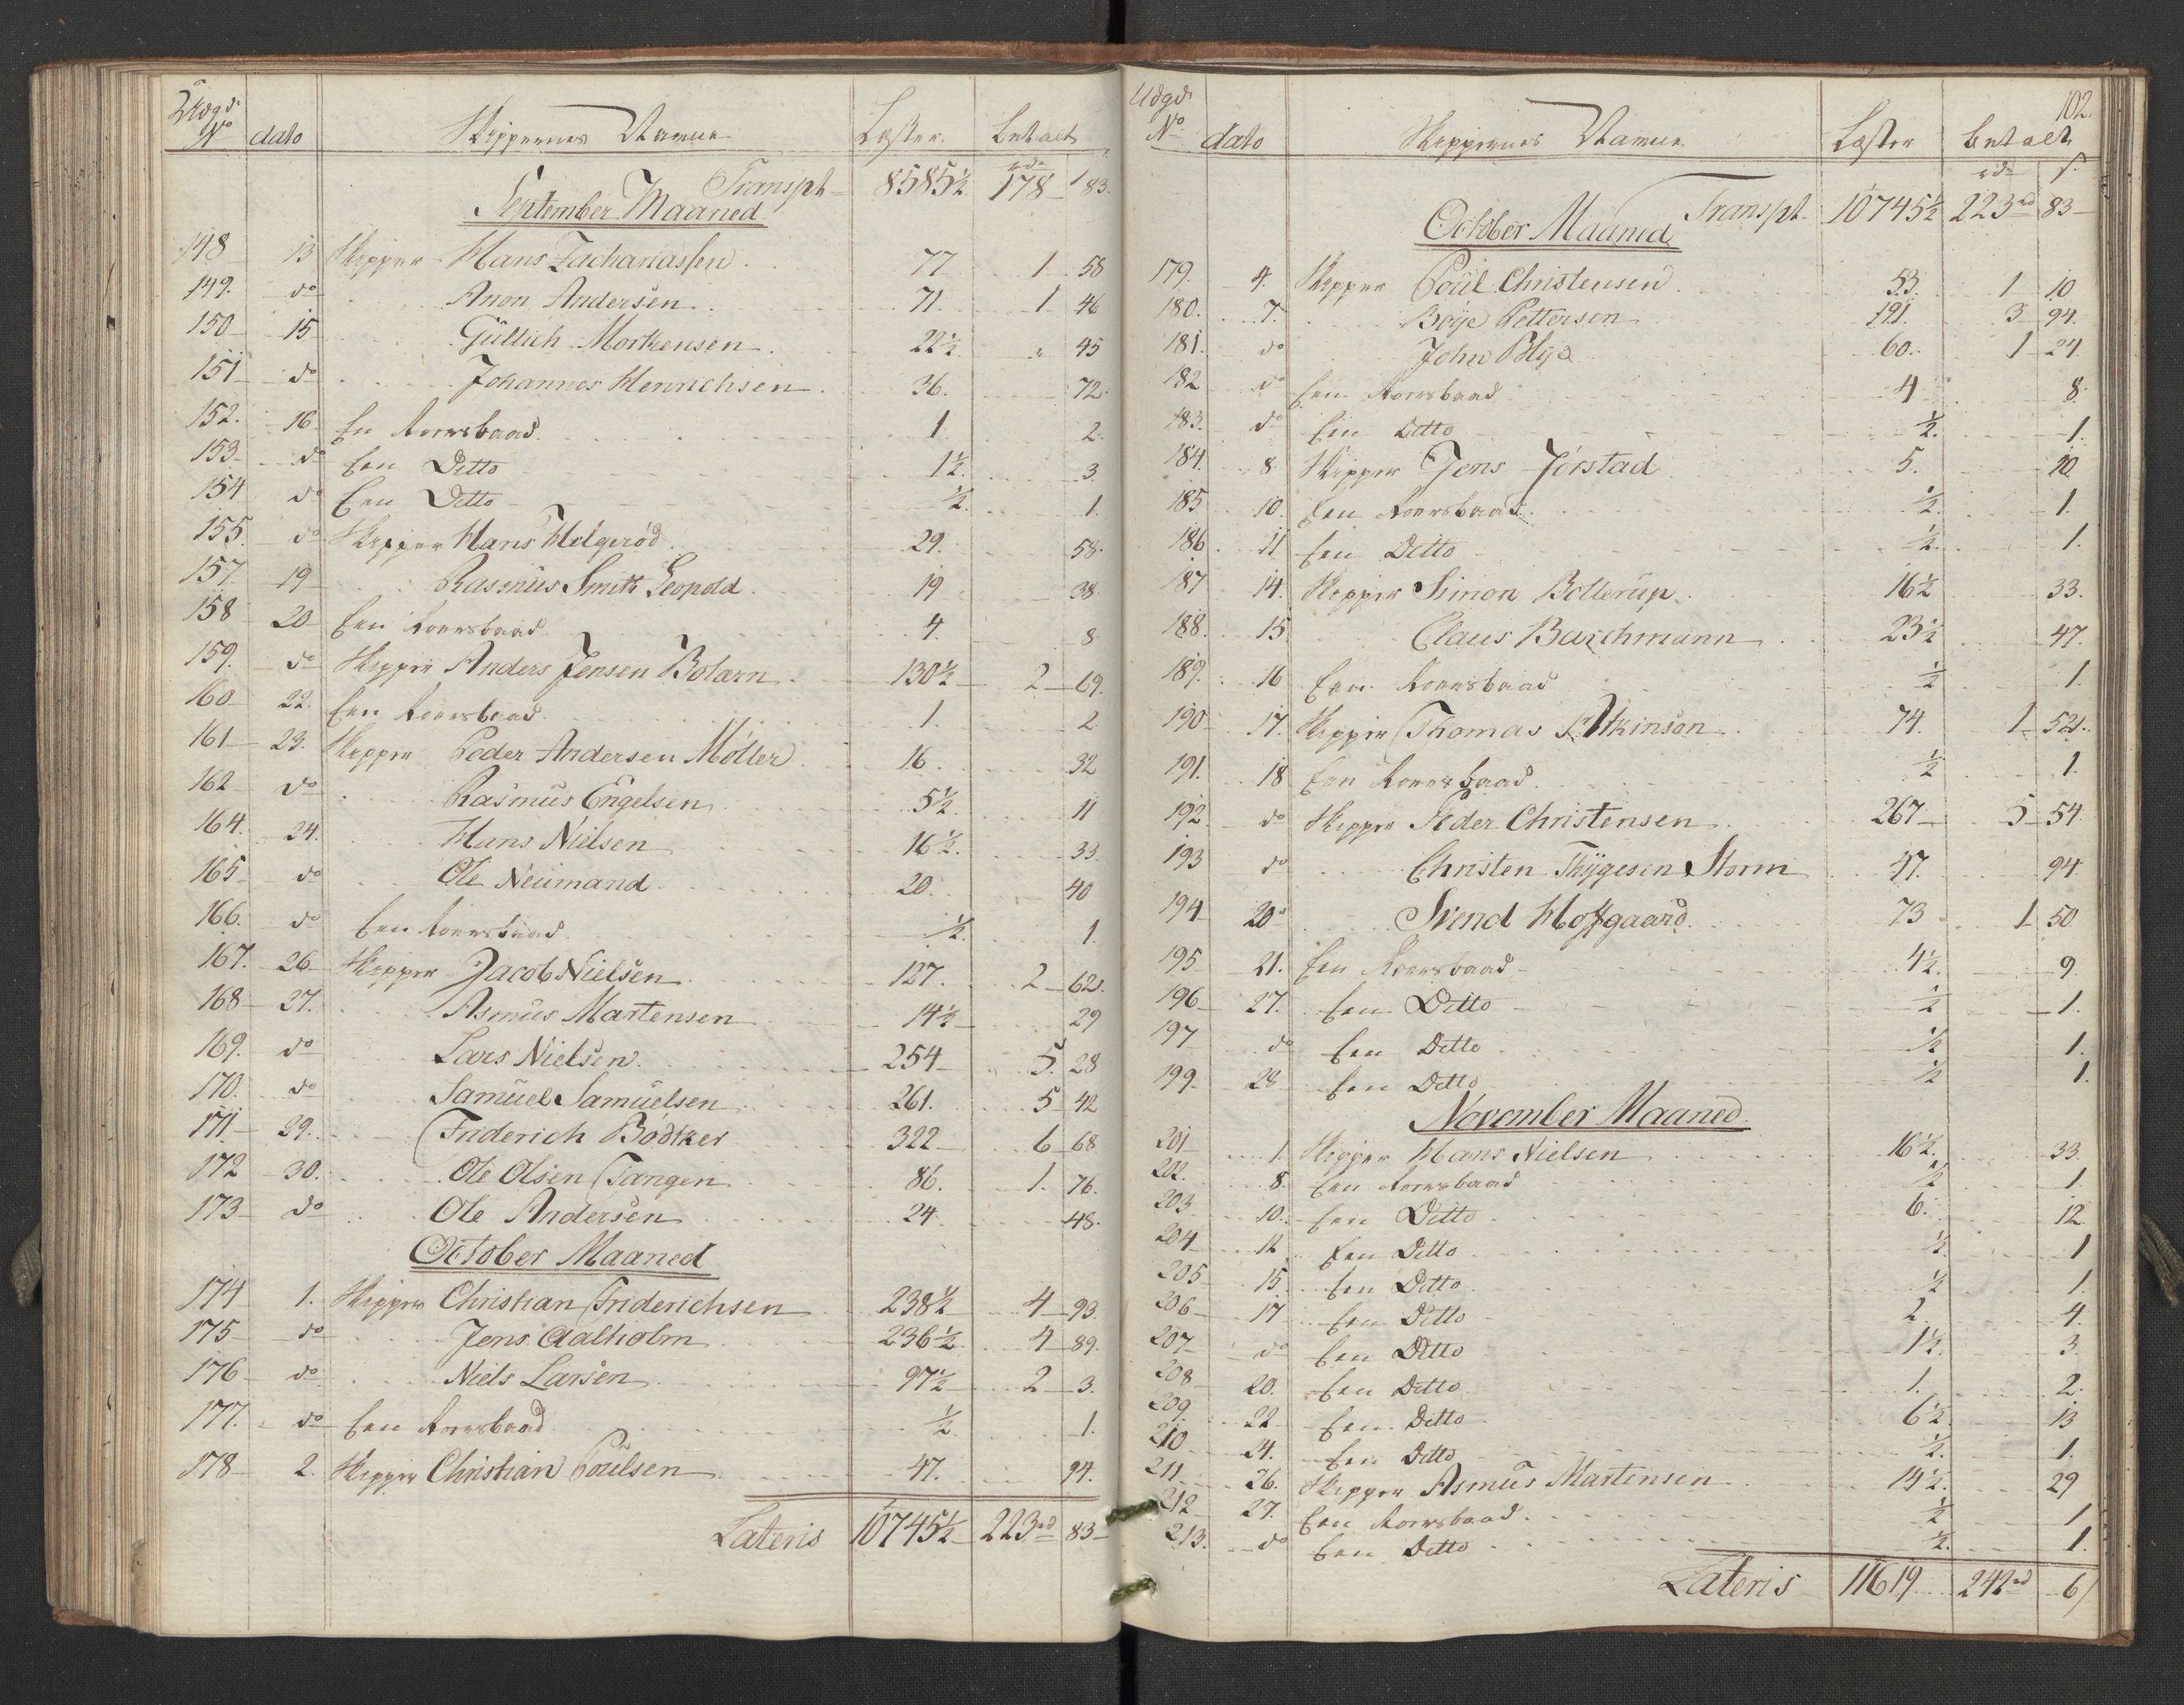 Udgd. No dato Skippernes Navne Læster. betalt
rdr
Transpt 8585½ 178 83.
September Maaned
148 13 Skipper Hans Zachariassen 77 1 58
149. do Anon Andersen 71. 1 46
150 15 Güllich Mortensen 22½ " 45
151 do Johannes Henrichsen 36. 72.
152. 16 En Roersbaad 1. 2.
153 do Een Ditto 1½. 3
154 do Een Ditto ½. 1.
155. do Skipper Hans Helgeröd 29. 58.
157 19 Rasmus Smith Leopold 19 38
158 20 Een Roersbaad 4. 8
159. do Skipper Anders Jensen Bolærn 130½ 2 69.
160 22. Een Roersbaad 1. 2
161 23. Skipper Peder Andersen Möller 16. 32
162 do Rasmus Engelsen 5½. 11
164. 24. Hans Nielsen 16½. 33.
165 do Ole Neumand 20. 40
166. do Een Roersbaad ½. 1.
167. 26 Skipper Jacob Nielsen 127. 2 62.
168 27. Asmus Martensen 14½ 29
169. do Lars Nielsen 254 5. 28
170. do Samuel Samuelsen 261. 5 42
171 29. Friderich Bödtker 322 6 68
172 30. Ole Olsen Tangen 86. 1. 76.
173 do Ole Andersen 24 48.
October Maaned
174 1. Skipper Christian Friderichsen 238½ 4 93.
175 do Jens Aalholm 236½ 4 89.
176 do Niels Larsen 97½ 2 3.
177. do Een Roersbaad ½. 1.
178 2. Skipper Christian Poulsen 47. 94.
Lateris 10745½ 223rd 83
102.
Udgd. No dato Skippernes Navne Læster betalt
rdr s.
Transpt. 10745½ 223rd 83
October Maaned
179. 4. Skipper Poul Christensen 53. 1 10
180. 7. Boÿe Pettersen 191. 3 94.
181. do John Blÿe 60. 1 24
182 do Een Roersbaad 4 8.
183. do Een Ditto ½. 1.
184. 8 Skipper Jens Jörstad 5. 10
185 10. Een Roersbaad ½. 1.
186. 11 Een Ditto ½. 1.
187 14. Skipper Simon Bollerup 16½ 33.
188. 15 Claus Barchmann 23½ 47.
189. 16 Een Roersbaad ½ 1.
190 17. Skipper Thomas Atkinson 74. 1 52.
191. 18 Een Roersbaad ½ 1.
192. do Skipper Peder Christensen 267 5 54
193 do Christen Thÿgesen Storm 47. 94
194 20 Svend Hofgaard 73 1 50
195 21. Een Roersbaad 4½. 9.
196 27. Een Ditto ½ 1.
197 do Een Ditto ½ 1.
199 28 Een Ditto ½ 1.
November Maaned
201 1. Skipper Hans Nielsen 16½. 33.
202. 8. Een Roersbaad ½ 1.
203 10. Een Ditto 6. 12.
204 12 Een Ditto ½. 1
205 15. Een Ditto ½ 1.
206 17 Een Ditto 2. 4.
207 do Een Ditto 1½. 3.
208 20. Een Ditto 1. 2.
209. 22 Een Ditto 6½. 13
210 24. Een Ditto ½. 1.
211 26. Skipper Asmus Martensen 14½. 29
212 27. Een Roersbaad ½ 1
213. do Een Ditto ½. 1.
Lateris 11619 242rd 6